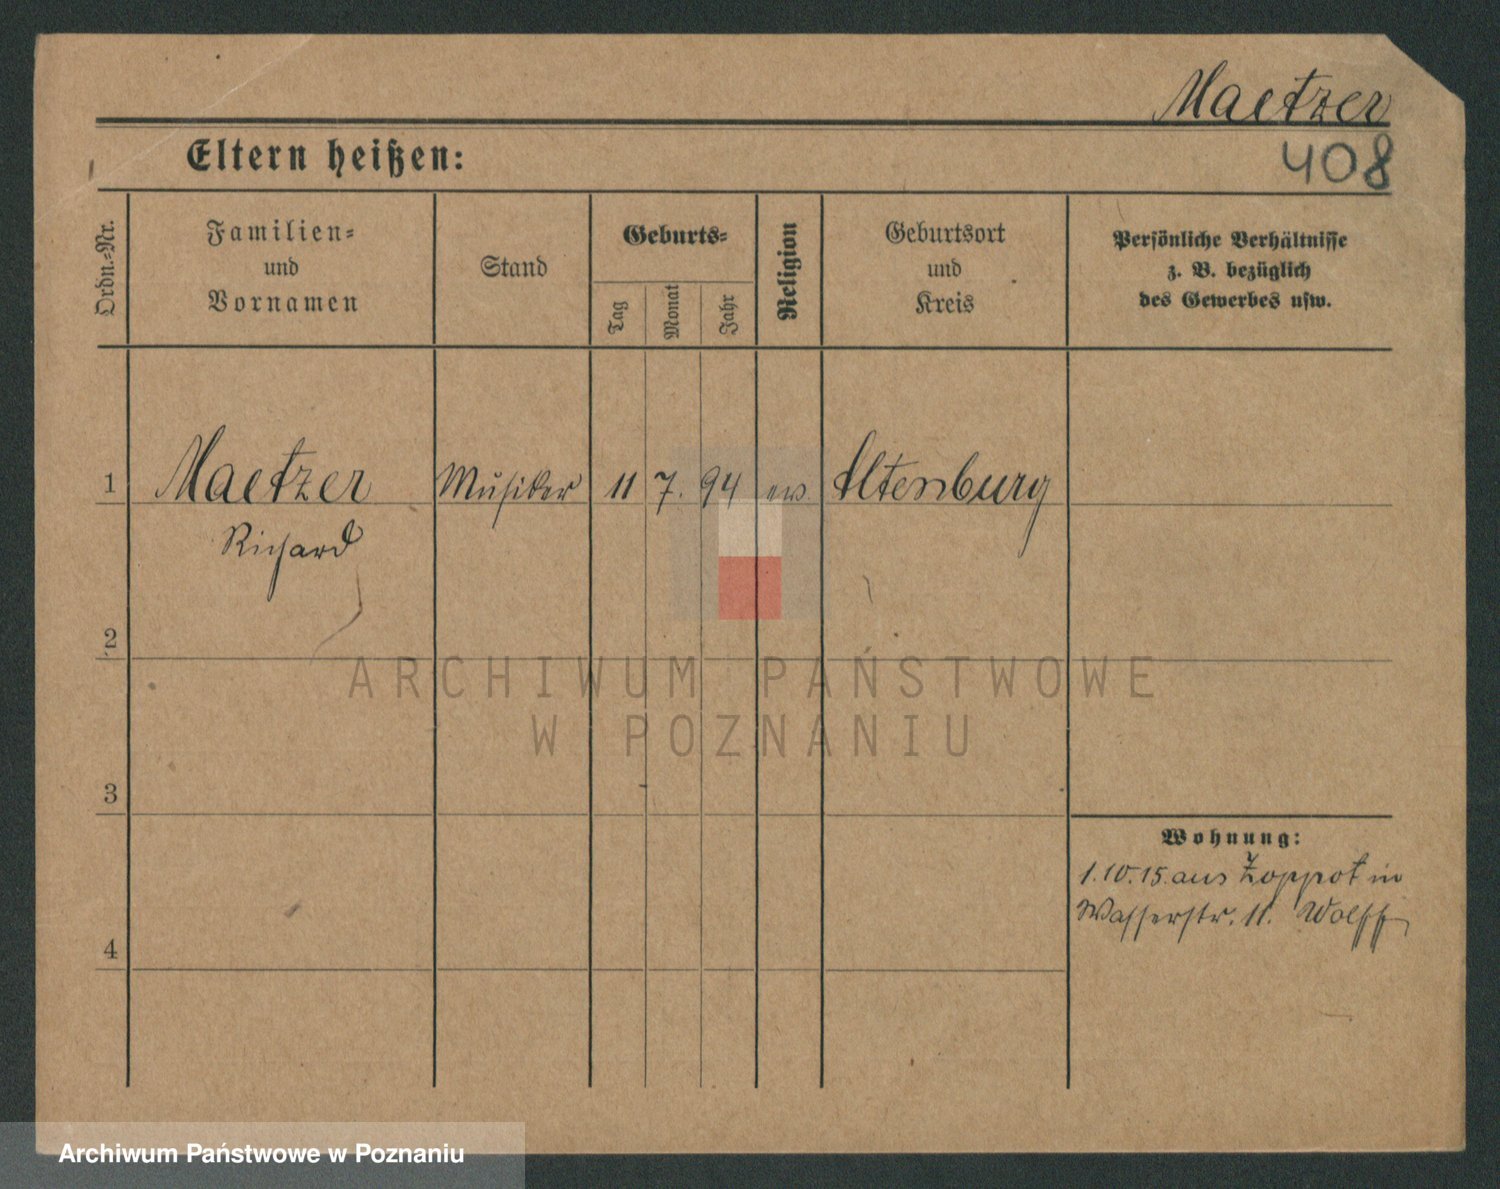 Maetzer
408
Eltern heißen:
Ordn.=Nr.
Familien=
und
Vornamen
Stand
Geburts=
Tag
Monat
Jahr
Religion
Geburtsort
und
Kreis
Persönliche Verhältnisse
z. B. bezüglich
des Gewerbes usw.
1 Maetzer Musiker 11 7. 94 ev. Altenburg
Richard
2
ARCHIWUM PAŃSTWOWE
W POZNANIU
3
Wohnung:
1.10.15. aus Zoppot in
Wasserstr. 11. Wolff
4
Archiwum Państwowe w Poznaniu